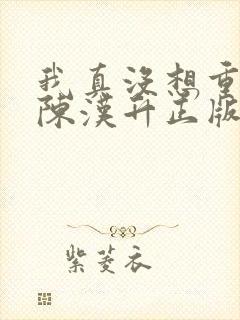 我真没想重
陈汉升正版
紫菱衣